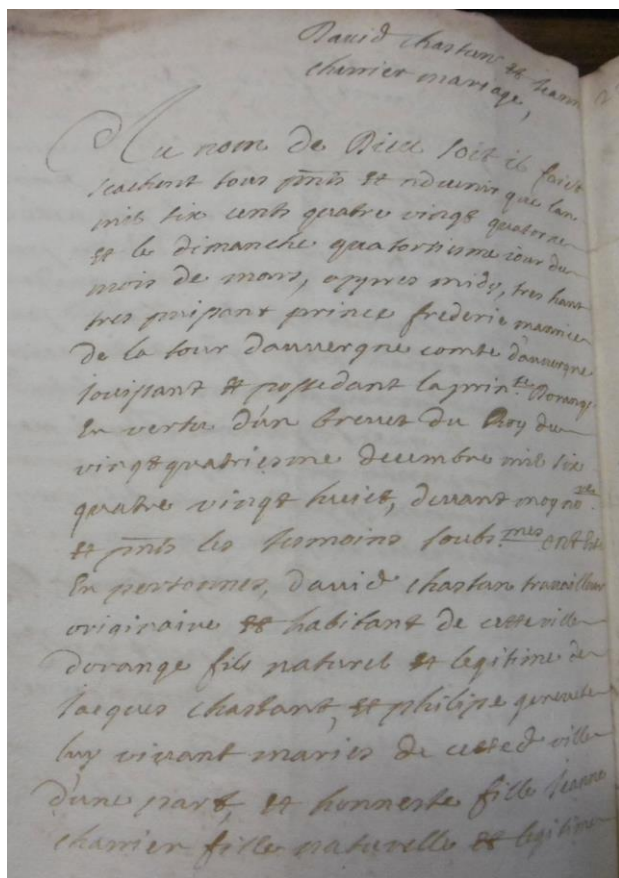 David chastan et Jeanne
charrier mariage,
Au nom de Dieu soit il faict
scachent tous pnts et advenir que lan
mil six cents quatre vingt quatorze
et le dimanche quatorsiesme iour du
mois de mars, appres midy, tres haut
tres puissant prince frederic maurice
de la tour dauvergne comte dauvergne
iouissant et possedant la prin.te Dorange
En vertu d'un brevet du Roy du
vingt quatriesme decembre mil six
quatre vingt huict, devant moy no.re
et pnts les temoins soubs.nes
En personnes, david chastan travailleur
originaire et habitant de cette ville
dorange fils naturel et legitime de
Jacques chastant, et philipe
luy vivant maries de cetted ville
d'une part, et honneste fille Jeanne
charrier fille naturelle et legitime